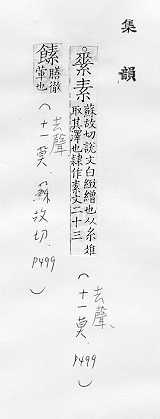 集韻
𦃃素 蘇故切說文白緻繒也从糸𠂹
取其澤也隸作素文二十三
(去聲
十一莫 P499)
膆 膳徹
葷也
(去聲
十一莫.蘇故切. P499)